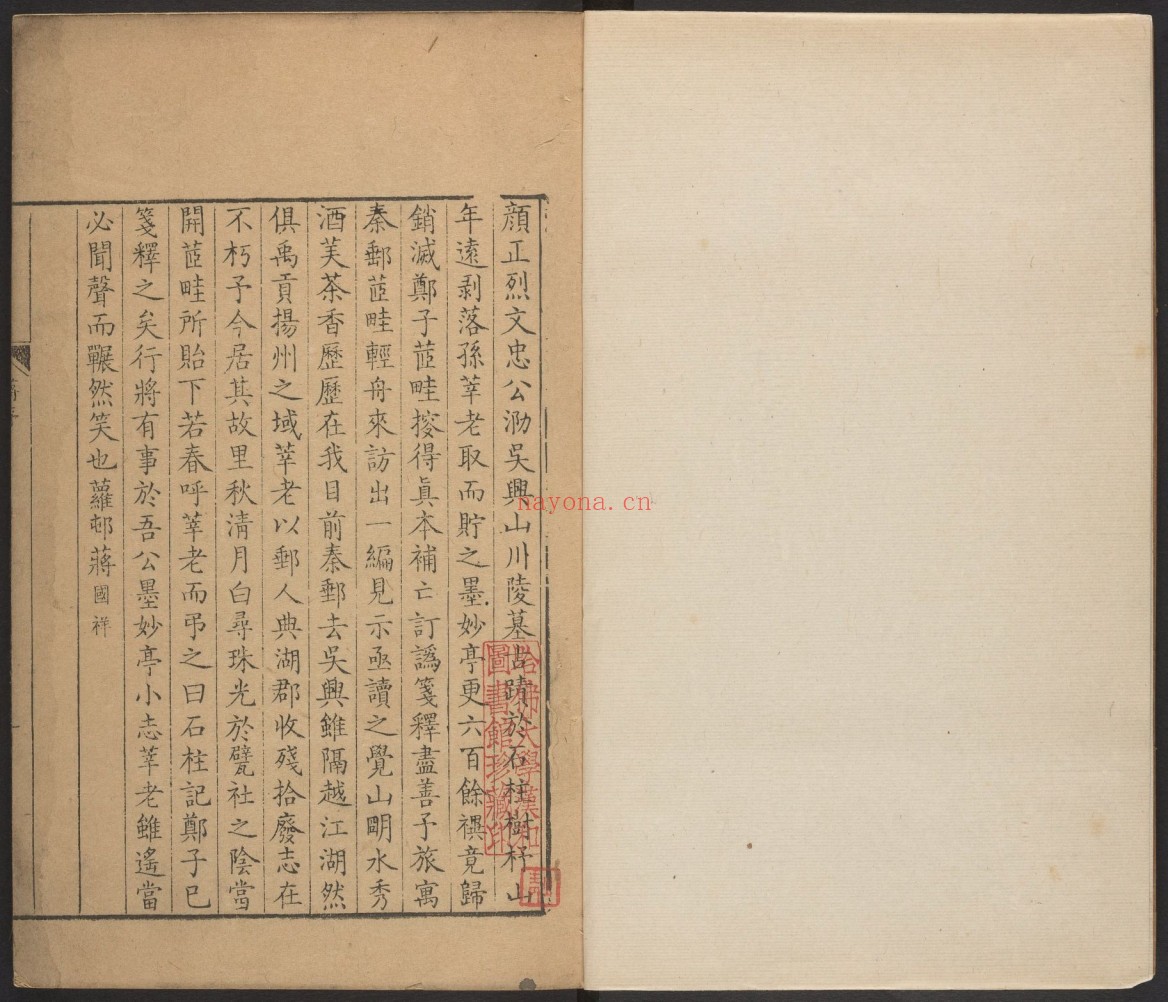 顔正烈文忠公泐吳興山川陵墓古蹟於石柱樹杼山
年遠剥落孫莘老取而貯之墨妙亭更六百餘禩竟歸
銷滅鄭子芷畦㨯得眞本補亡訂譌箋釋盡善予旅寓
秦郵芷畦輕舟來訪出一編見示亟讀之覺山明水秀
酒芙茶香歷歷在我目前秦郵去吳興雖隔越江湖然
俱禹貢揚州之域莘老以郵人典湖郡收殘拾廢志在
不朽予今居其故里秋淸月白尋珠光於甓社之陰當
開芷畦所貽下若春呼莘老而弔之曰石柱記鄭子已
箋釋之矣行將有事於吾公墨妙亭小志莘老雖遙當
必聞聲而囅然笑也蘿邨蔣國祥
哈佛大學漢和
圖書館珍藏印
nayona.cn